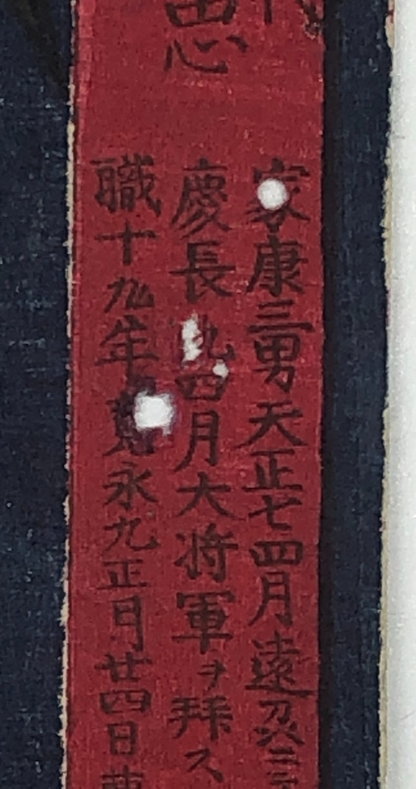 忠
家康三男天正七四月遠
慶長九四月大将軍ヲ拜ス
職十九年寛永九正月廿四日